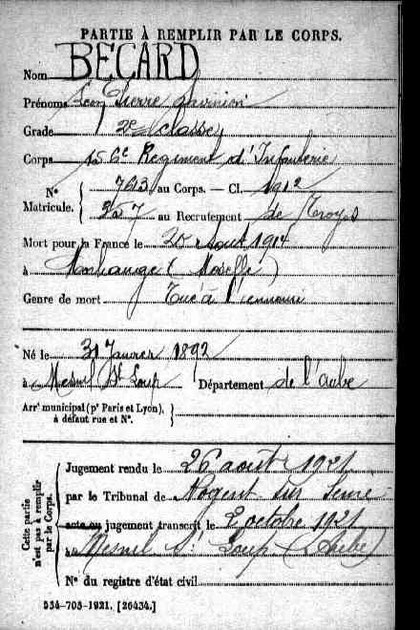 PARTIE À REMPLIR PAR LE CORPS.
Nom BECARD
Prénoms Léon Pierre Savinien
Grade 2e classe
Corps 156e Régiment d'Infanterie
N° 7613 au Corps. — Cl. 1912
Matricule. 357 au Recrutement de Troyes
Mort pour la France le 20 Aout 1914
à Morhange (Moselle)
Genre de mort Tué à l'ennemi
Né le 31 Janvier 1892
à Mesnil St Loup Département de l'Aube
Arrt municipal (pr Paris et Lyon),
à défaut rue et N°.
Cette partie
n'est pas à remplir
par le Corps.
Jugement rendu le 26 août 1921
par le Tribunal de Nogent sur Seine
acte ou jugement transcrit le 2 octobre 1921
à Mesnil St Loup (Aube)
N° du registre d'état civil
534-708-1921. [26434.]